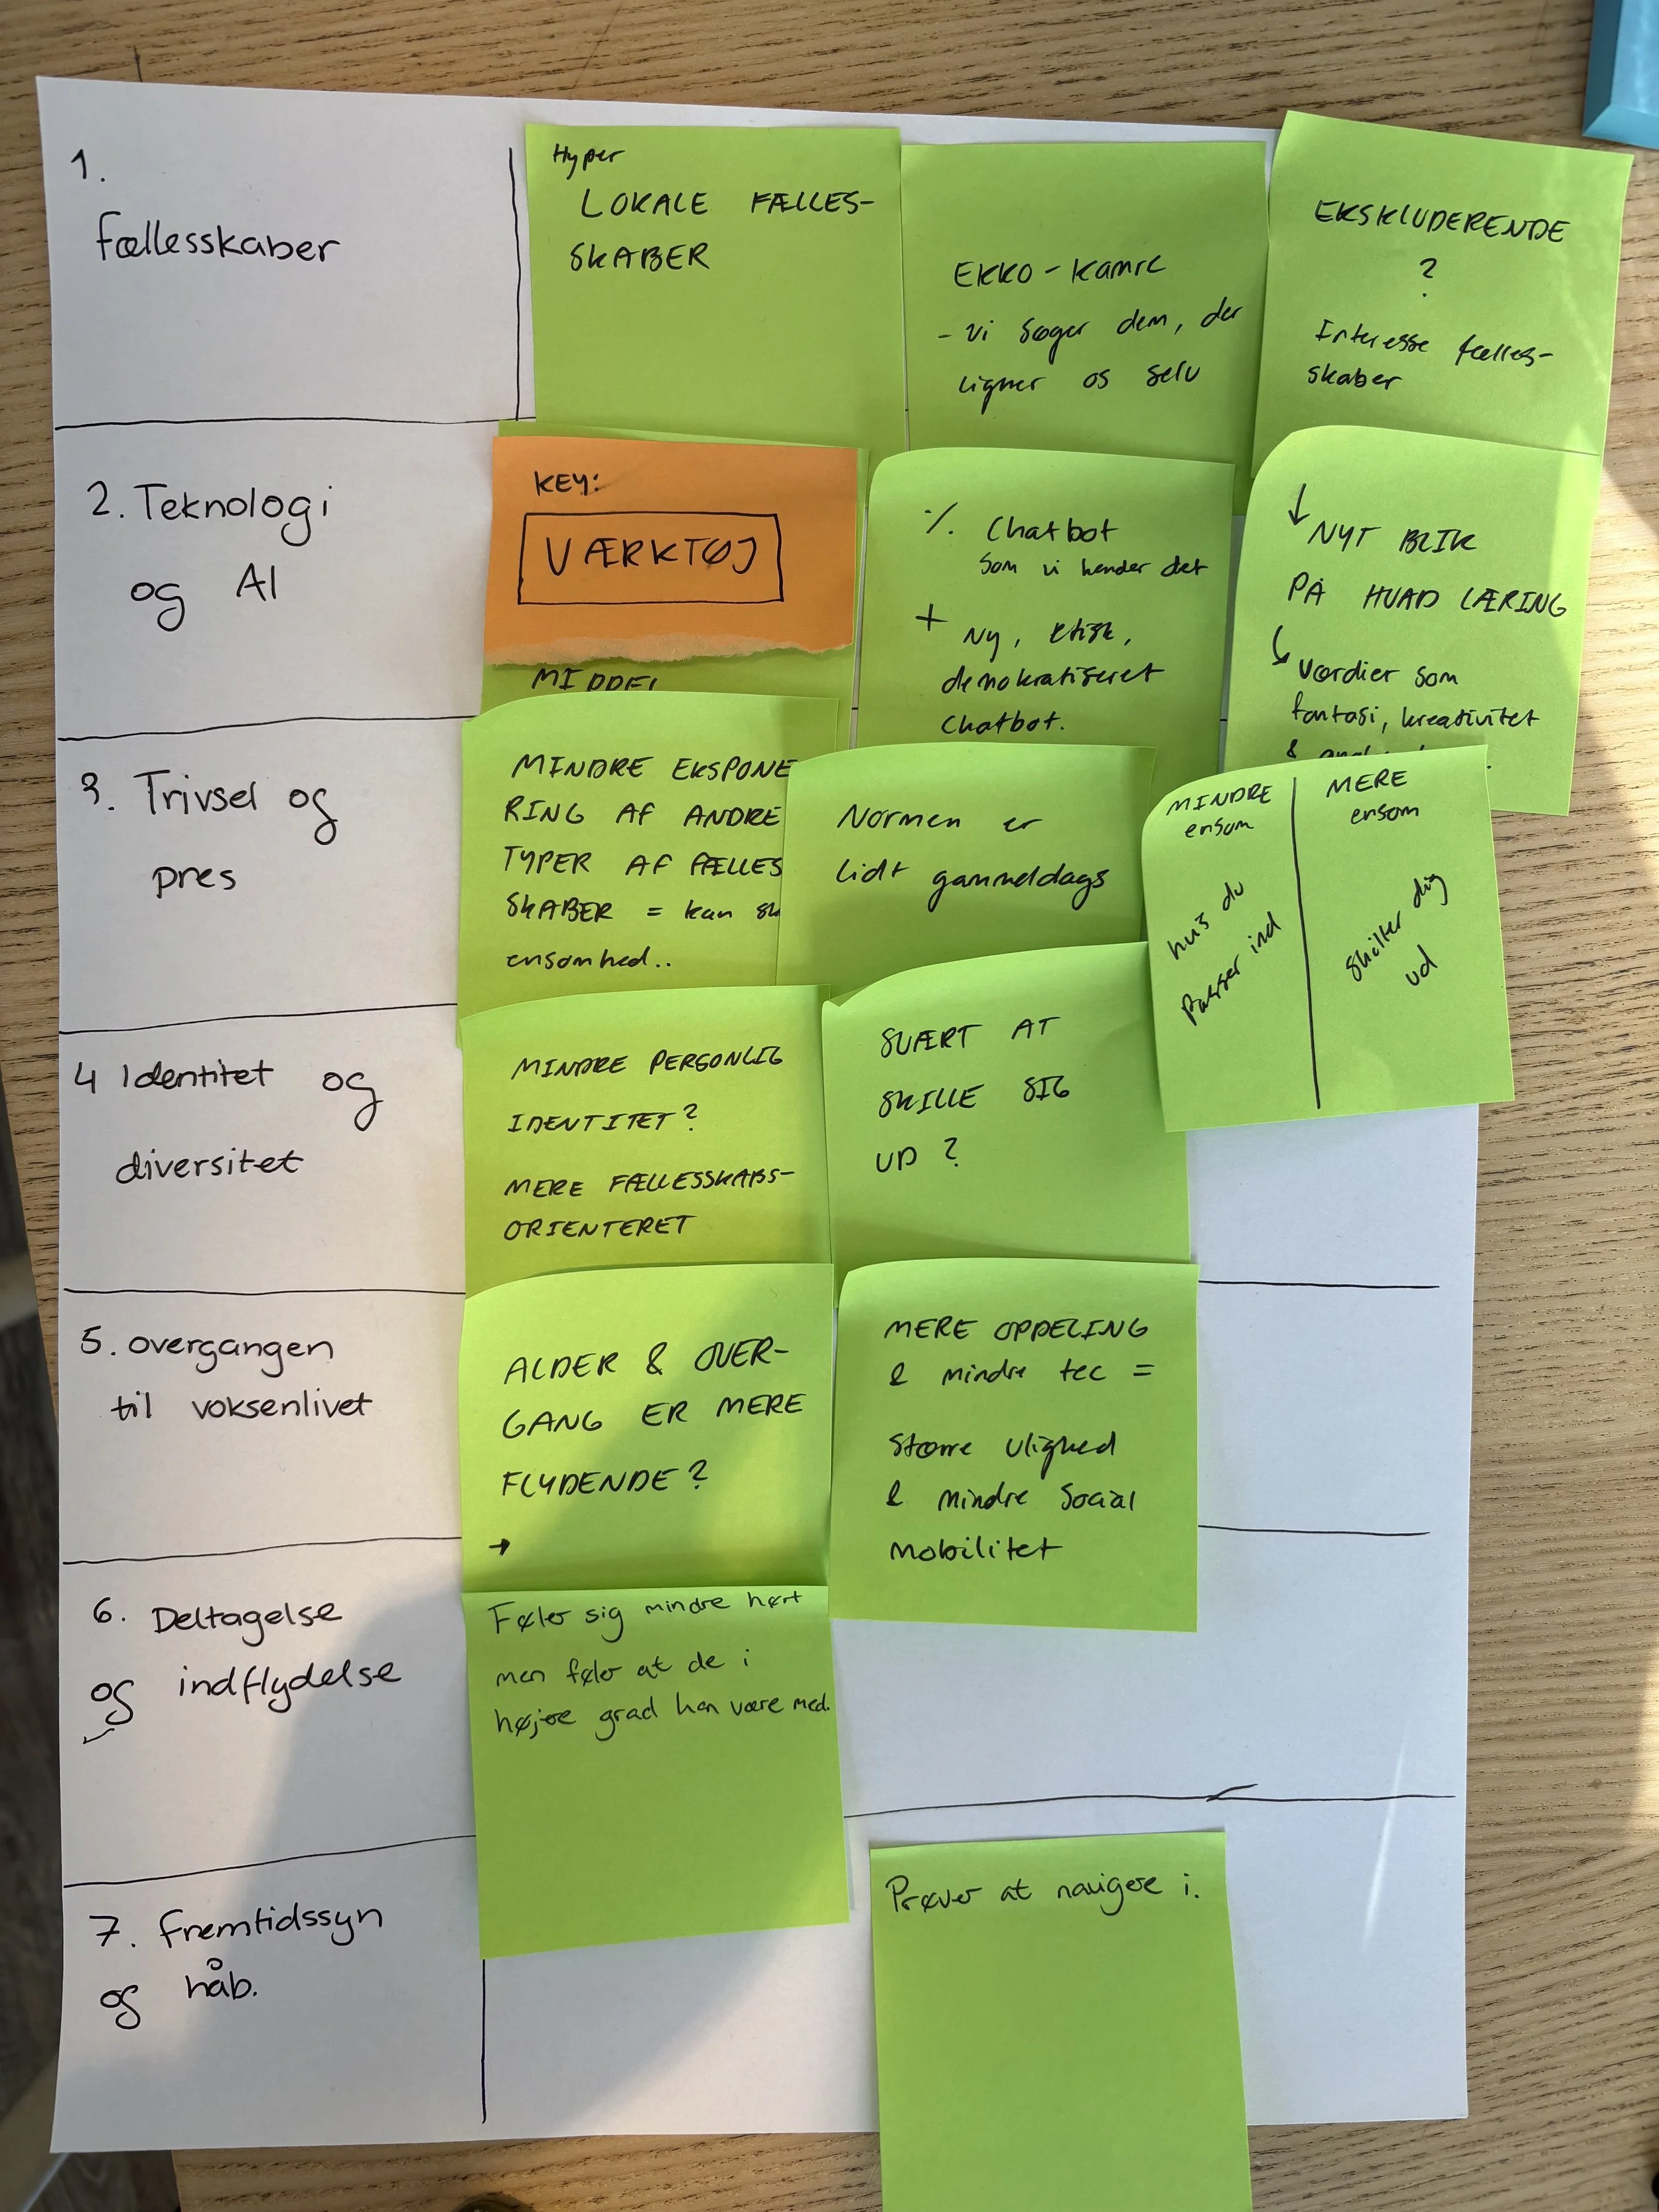 1.
fællesskaber
Hyper
LOKALE FÆLLES-
SKABER
EKKO-kamre
- vi søger dem, der
ligner os selv
EKSKLUDERENDE
?
Interesse fælles-
skaber
2. Teknologi
og AI
KEY:
VÆRKTØJ
MIDDEL
÷ Chatbot
som vi kender det
+ Ny, etisk,
demokratiseret
Chatbot.
↓ NYT BLIK
PÅ HVAD LÆRING
værdier som
fantasi, kreativitet
&
3. Trivsel og
pres
MINDRE EKSPONE
RING AF ANDRE
TYPER AF FÆLLES
SKABER = kan sk
ensomhed..
Normen er
lidt gammeldags
MINDRE
ensom
hvis du
passer ind
MERE
ensom
skilter dig
ud
4 Identitet og
diversitet
MINDRE PERSONLIG
IDENTITET?
MERE FÆLLESSKABS-
ORIENTERET
SVÆRT AT
SKILLE SIG
UD ?
5. overgangen
til voksenlivet
ALDER & OVER-
GANG ER MERE
FLYDENDE?
→
MERE OPDELING
& mindre tec =
større ulighed
& mindre social
mobilitet
6. Deltagelse
og indflydelse
Føler sig mindre hørt
men føler at de i
højere grad kan være med.
7. fremtidssyn
og håb.
Prøver at navigere i.